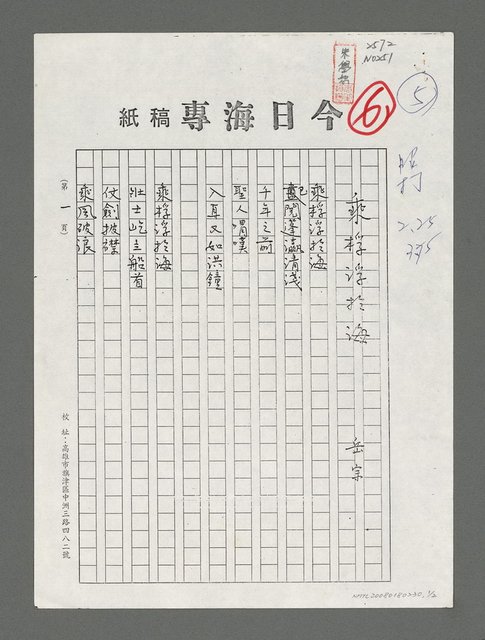 2572
N0251
朱學恕
6
5
今日海專稿紙
2.25
395
乘桴浮於海
岳宗
乘桴浮於海
已聞蓬瀛清淺
千年之前
聖人喟嘆
入耳又如洪鐘
乘桴浮於海
壯士屹立船首
仗劍披襟
乘風破浪
(第一頁)
校址：高雄市旗津區中洲三路四八二號
NMTL20080180230,1/2